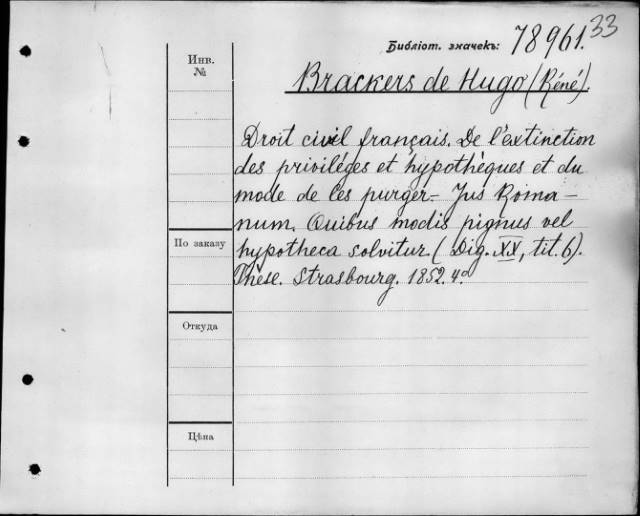 33
Библіот. значекъ: 78961.
Инв. №
Brackers de Hugo (Réné).
Droit civil français. De l'extinction
des priviléges et hypothèques et du
mode de les purger.- Jus Roma-
num. Quibus modis pignus vel
hypotheca solvitur. (Dig. XX, tit. 6).
Thèse. Strasbourg. 1852. 4º
По заказу
Откуда
Цѣна